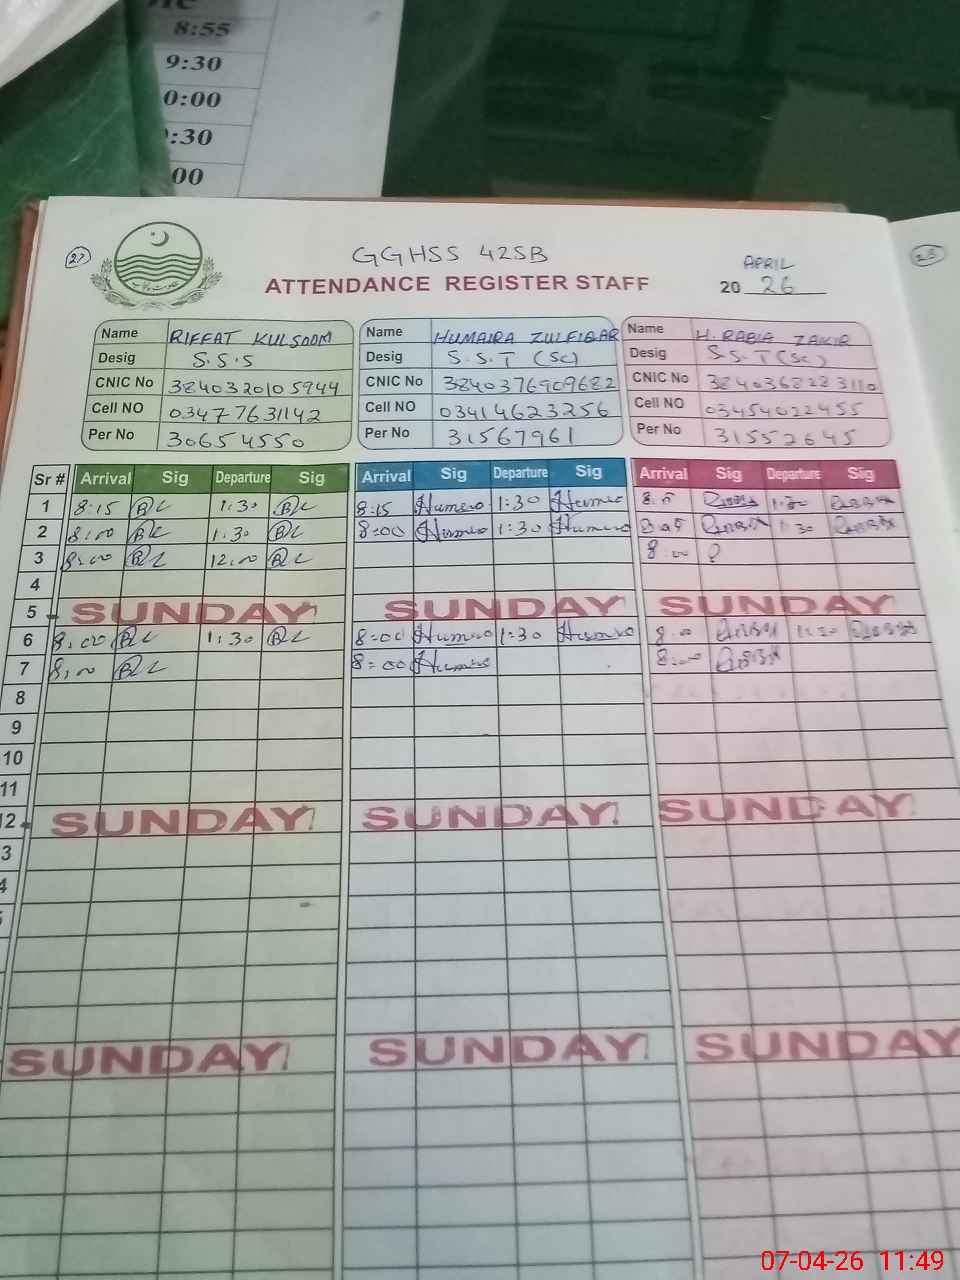 8:55
9:30
0:00
:30
00
27
23
GGHSS 42SB
APRIL
ATTENDANCE REGISTER STAFF
20 26
Name RIFFAT KULSOOM
Desig S.S.S
CNIC No 3840320105944
Cell NO 03477631142
Per No 30654550
Name HUMAIRA ZULFIQAR
Desig S.S.T (SC)
CNIC No 3840376909682
Cell NO 03414623256
Per No 31567961
Name H. RABIA ZAKIR
Desig S.S.T (SC)
CNIC No 3840368283110
Cell NO 03454022455
Per No 31552645
Sr # Arrival Sig Departure Sig Arrival Sig Departure Sig Arrival Sig Departure Sig
1 8:15 1:30 8:15 Humera 1:30 Humera
2 8:00 1:30 8:00 Humera 1:30 Humera 1:30
3 8:00 12:00 8:00
4
5 SUNDAY SUNDAY SUNDAY
6 8:00 1:30 8:00 Humera 1:30 Humera 8:00 1:30
7 8:00 8:00 Humera 8:00
8
9
10
11
2 SUNDAY SUNDAY SUNDAY
3
4
SUNDAY SUNDAY SUNDAY
07-04-26 11:49